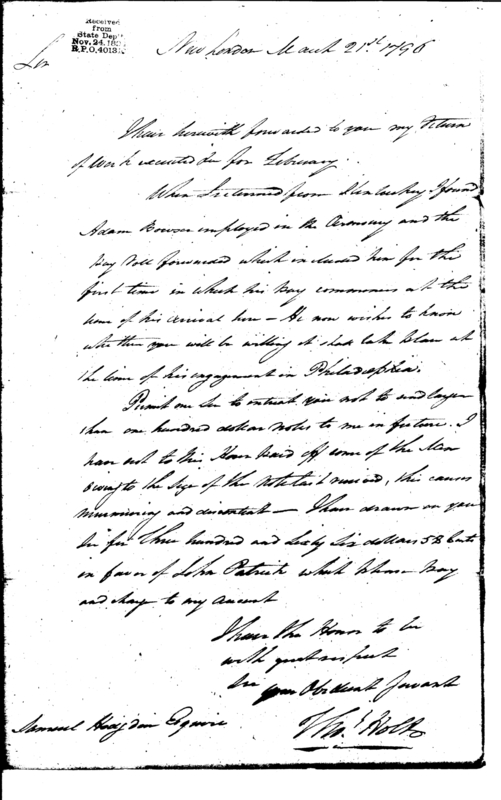 Received
from
State Dep't
Nov. 24, 18
R.P.O, 4013
Sir
New London March 21st 1796
I have herewith forwarded to you my Return
of Work executed for February.
When I returned from I found
Adam employed in the Armoury and the
Pay Roll forwarded which included him for the
first time in which his Pay commences at the
time of his arrival here — He now wishes to know
whether you will be willing it shall take place at
the time of his engagement in Philadelphia.
Permit me Sir to intreat you not to send larger
than one hundred dollar notes to me in future. I
have not to this Hour paid off some of the Men
owing to the Size of the note last received, this causes
murmuring and discontent — I have drawn on you
Sir for three hundred and Sixty Six dollars 58 Cents
in favor of John Patrick which please Pay
and charge to my account
I have the Honor to be
with great respect
Sir your Obedient Servant
Thos. Holt
Samuel Hodgdon Esquire